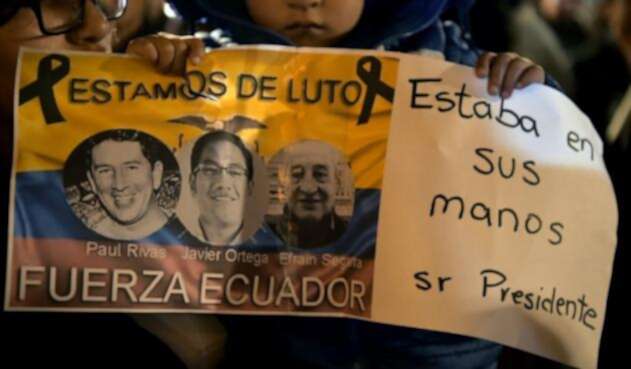 ESTAMOS DE LUTO
Paul Rivas Javier Ortega Efraín Segarra
FUERZA ECUADOR
Estaba en
sus
manos
sr Presidente